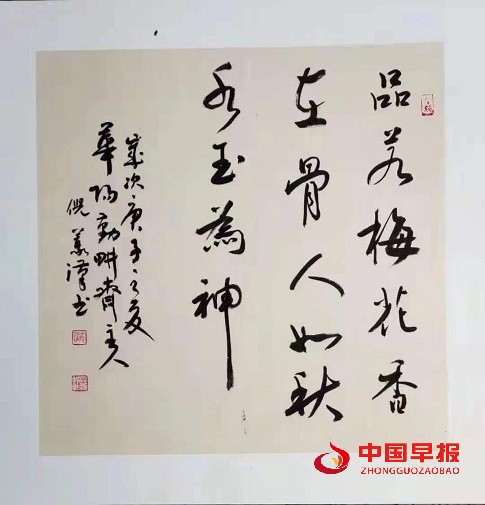 品若梅花香
在骨人如秋
水玉為神
歲次庚子之夏
華陽勤畊齋主人
倪書
中国早报
ZHONGGUOZAOBAO